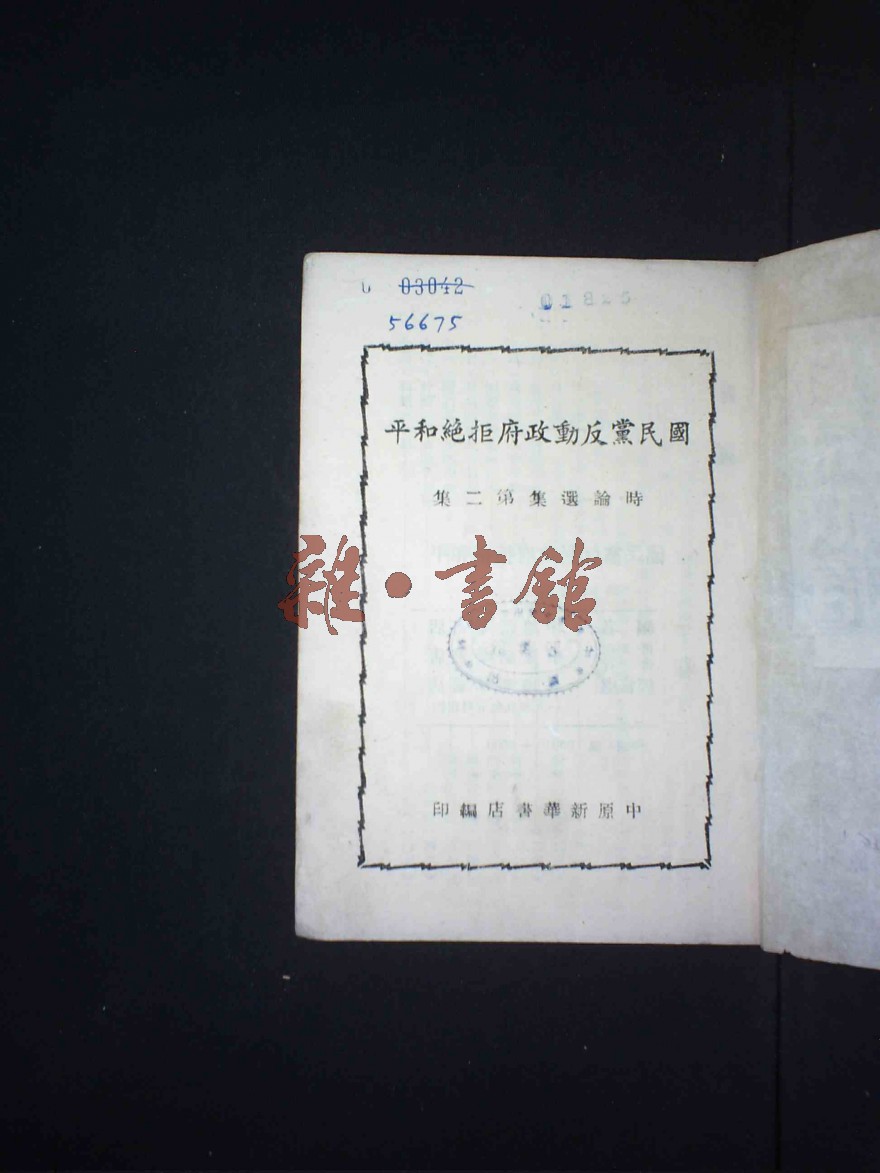 03042
56675
國民黨反動政府拒絶和平
時論選集第二集
雜·書館
中原新華書店編印